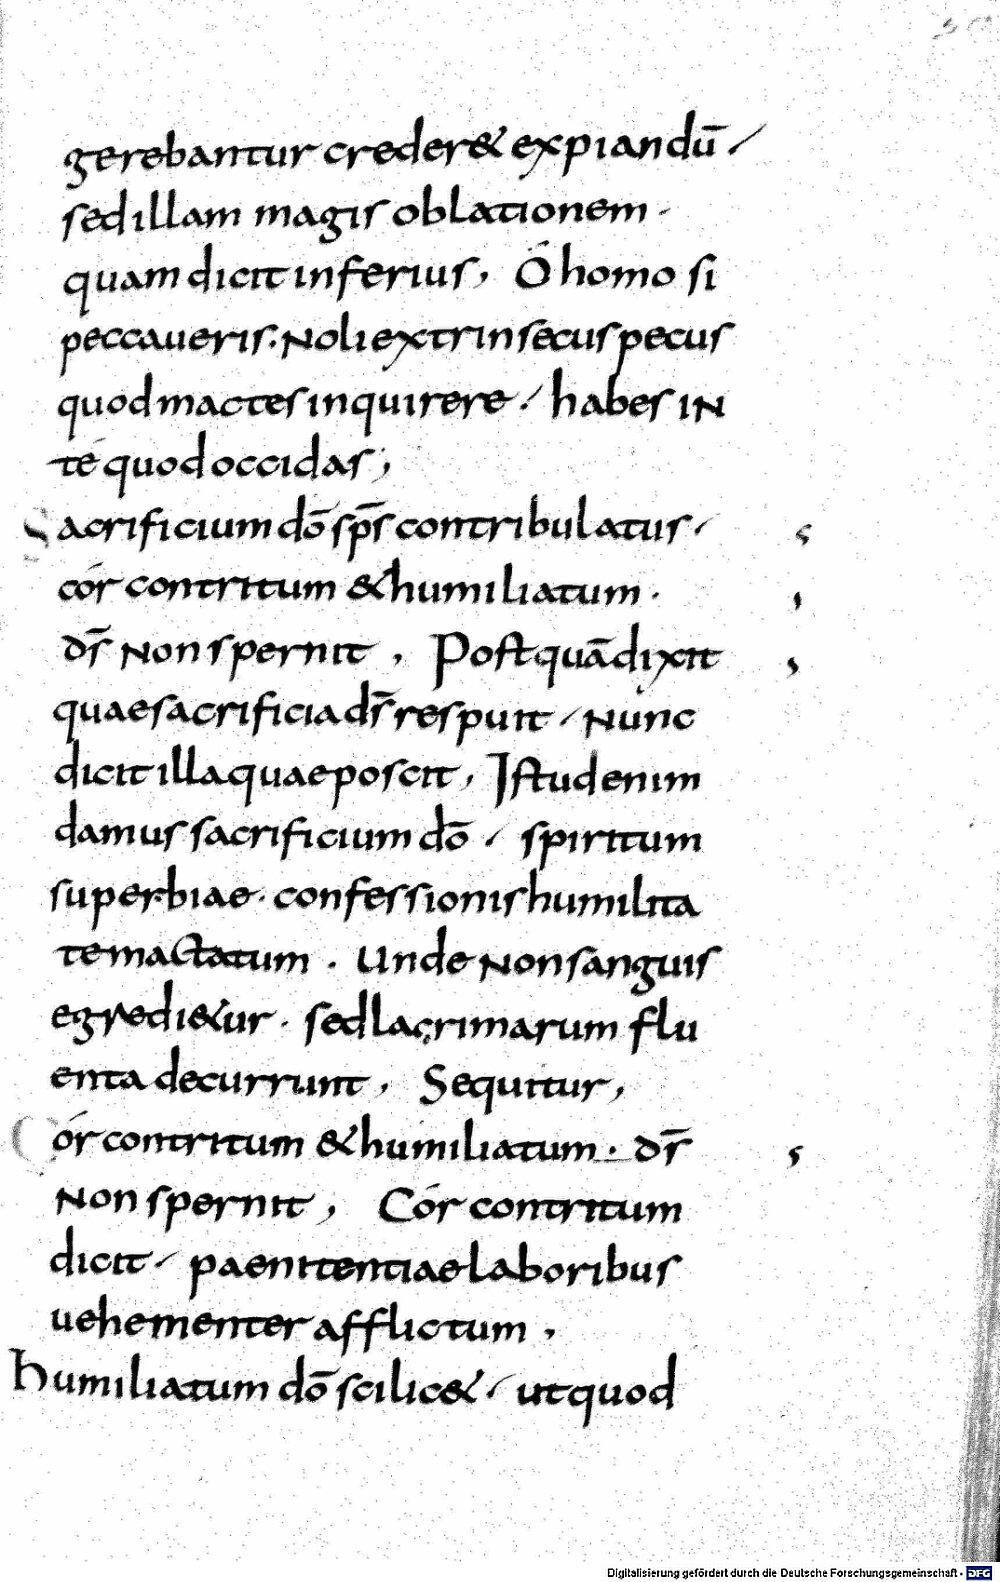 gerebantur creder& expiandū /
sed illam magis oblationem ·
quam dicit inferius, Ó homo si
peccaueris: Noli extrinsecus pecus
quod mactes inquirere ·/ habes IN
té quod occidas,
Sacrificium dō sp̄s contribulatus /
cór contritum & humiliatum ·
ds̄ Non spernit , Post quā dixit
quae sacrificia ds̄ respuit / Nunc
dicit illa quae poscit, Istud enim
damus sacrificium dō / spiritum
superbiae · confessionis humilita
te mactatum · Unde Non sanguis
egredi&ur · sed lacrimarum flu
enta decurrunt, Sequitur,
Cór contritum & humiliatum · ds̄
Non spernit, Cór contritum
dicit / paenitentiae laboribus
uehementer afflictum ,
humiliatum dō scilic& / ut quod
Digitalisierung gefördert durch die Deutsche Forschungsgemeinschaft - DFG